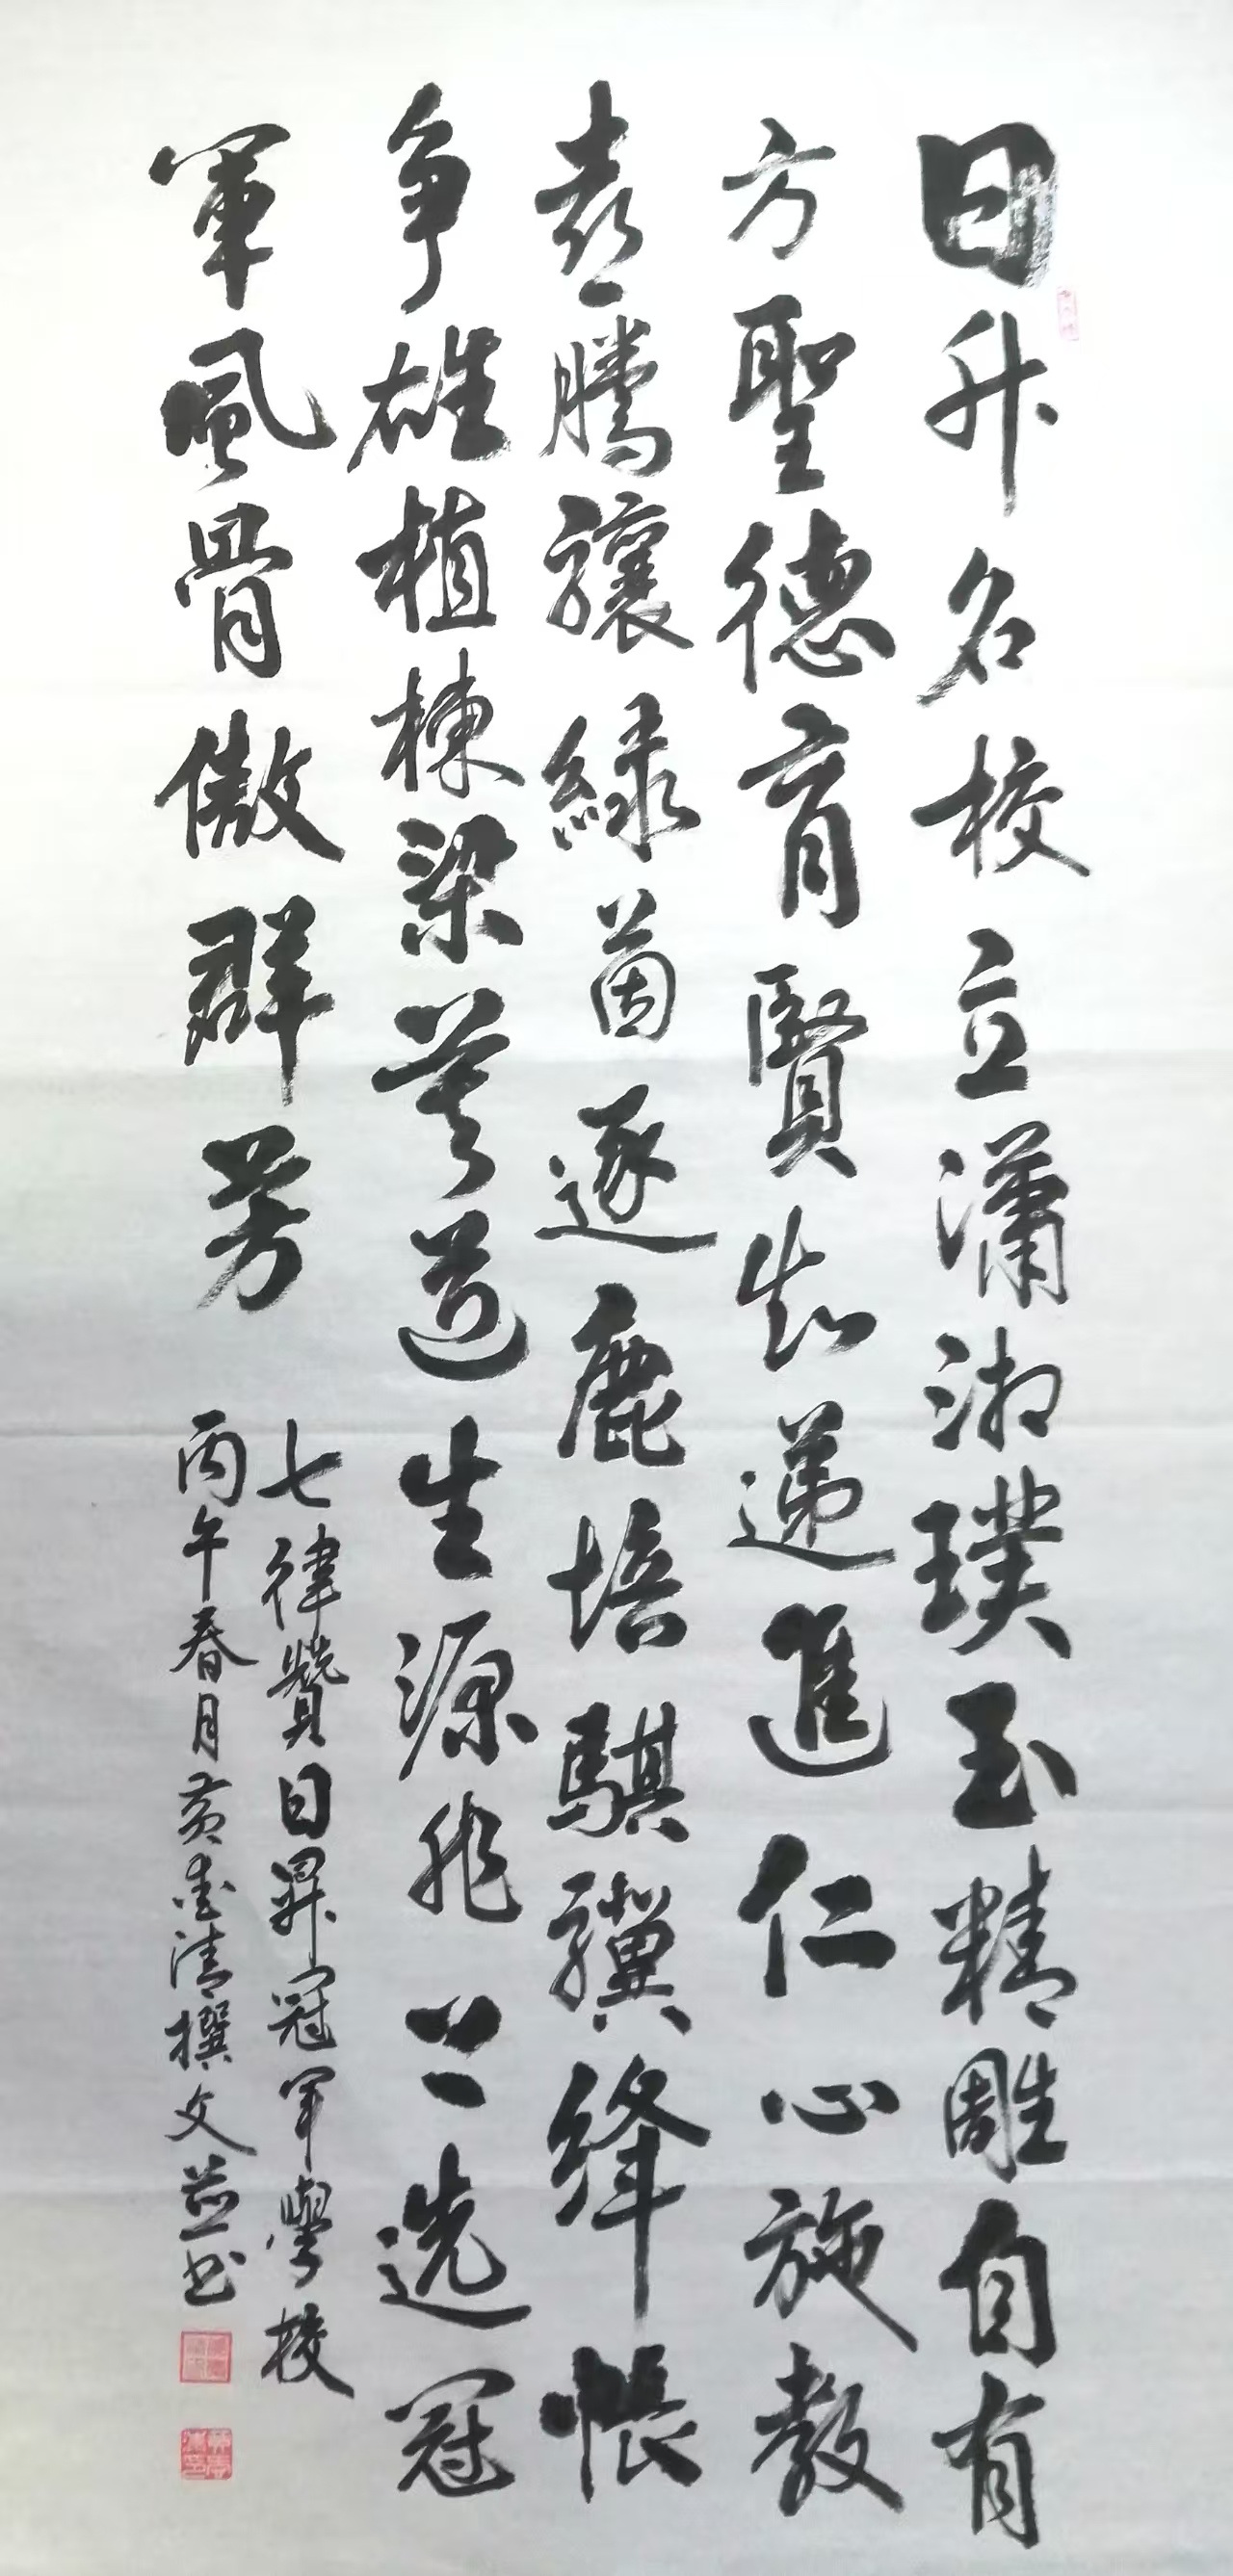 日升名校立瀟湘璞玉精雕自有
方聖德育賢知遞進仁心施教
喜騰驤緑茵逐鹿培騏驥絳帳
争雄植棟梁莫道生源非上選冠
軍風骨傲群芳
七律贊日昇冠軍學校
丙午春月黄清撰文並书